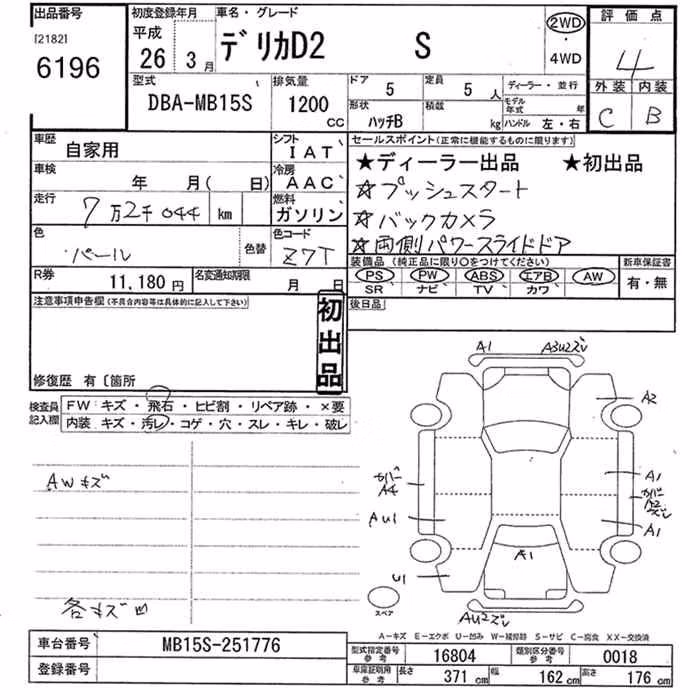 出品番号
[2182]
6196
初度登録年月
平成
26 3月
車名・グレード
デリカD2 S
2WD
・
4WD
評価点
4
外装 内装
C B
型式
DBA-MB15S
排気量
1200
CC
ドア
5
定員
5 人
ディーラー・並行
形状
ハッチB
積載
kg
モデル年式 年
ハンドル 左・右
車歴
自家用
シフト
IAT
車検
年 月( 日)
冷房
AAC
走行
7万2千044 km
燃料
ガソリン
色
パール
色替
色コード
Z7T
R券
11,180円
名変通知期限
月 日
セールスポイント(正常に機能するものに限ります)
★ディーラー出品 ★初出品
☆プッシュスタート
☆バックカメラ
☆両側パワースライドドア
装備品 (純正品に限り〇をつけてください)
PS PW ABS エアB AW
SR ナビ TV カワ
新車保証書
有・無
注意事項申告欄(不具合内容等は具体的に記入して下さい)
後日品
初出品
修復歴 有〔箇所
検査員記入欄
FW:キズ・飛石・ヒビ割・リペア跡・×要
内装:キズ・汚レ・コゲ・穴・スレ・キレ・破レ
AWキズ
各キズ凹
A1 A3U2ズレ
A2
カバー
A4
A1
カバー
A2
ズレ
AU1
A1
A1
U1
スペア
AU2ズレ
A-キズ E-エクボ U-凹み W-補修跡 S-サビ C-腐食 XX-交換済
車台番号
MB15S-251776
登録番号
型式指定番号
参考
16804
類別区分番号
参考
0018
車庫証明用
参考
長さ
371 cm
幅
162 cm
高さ
176 cm